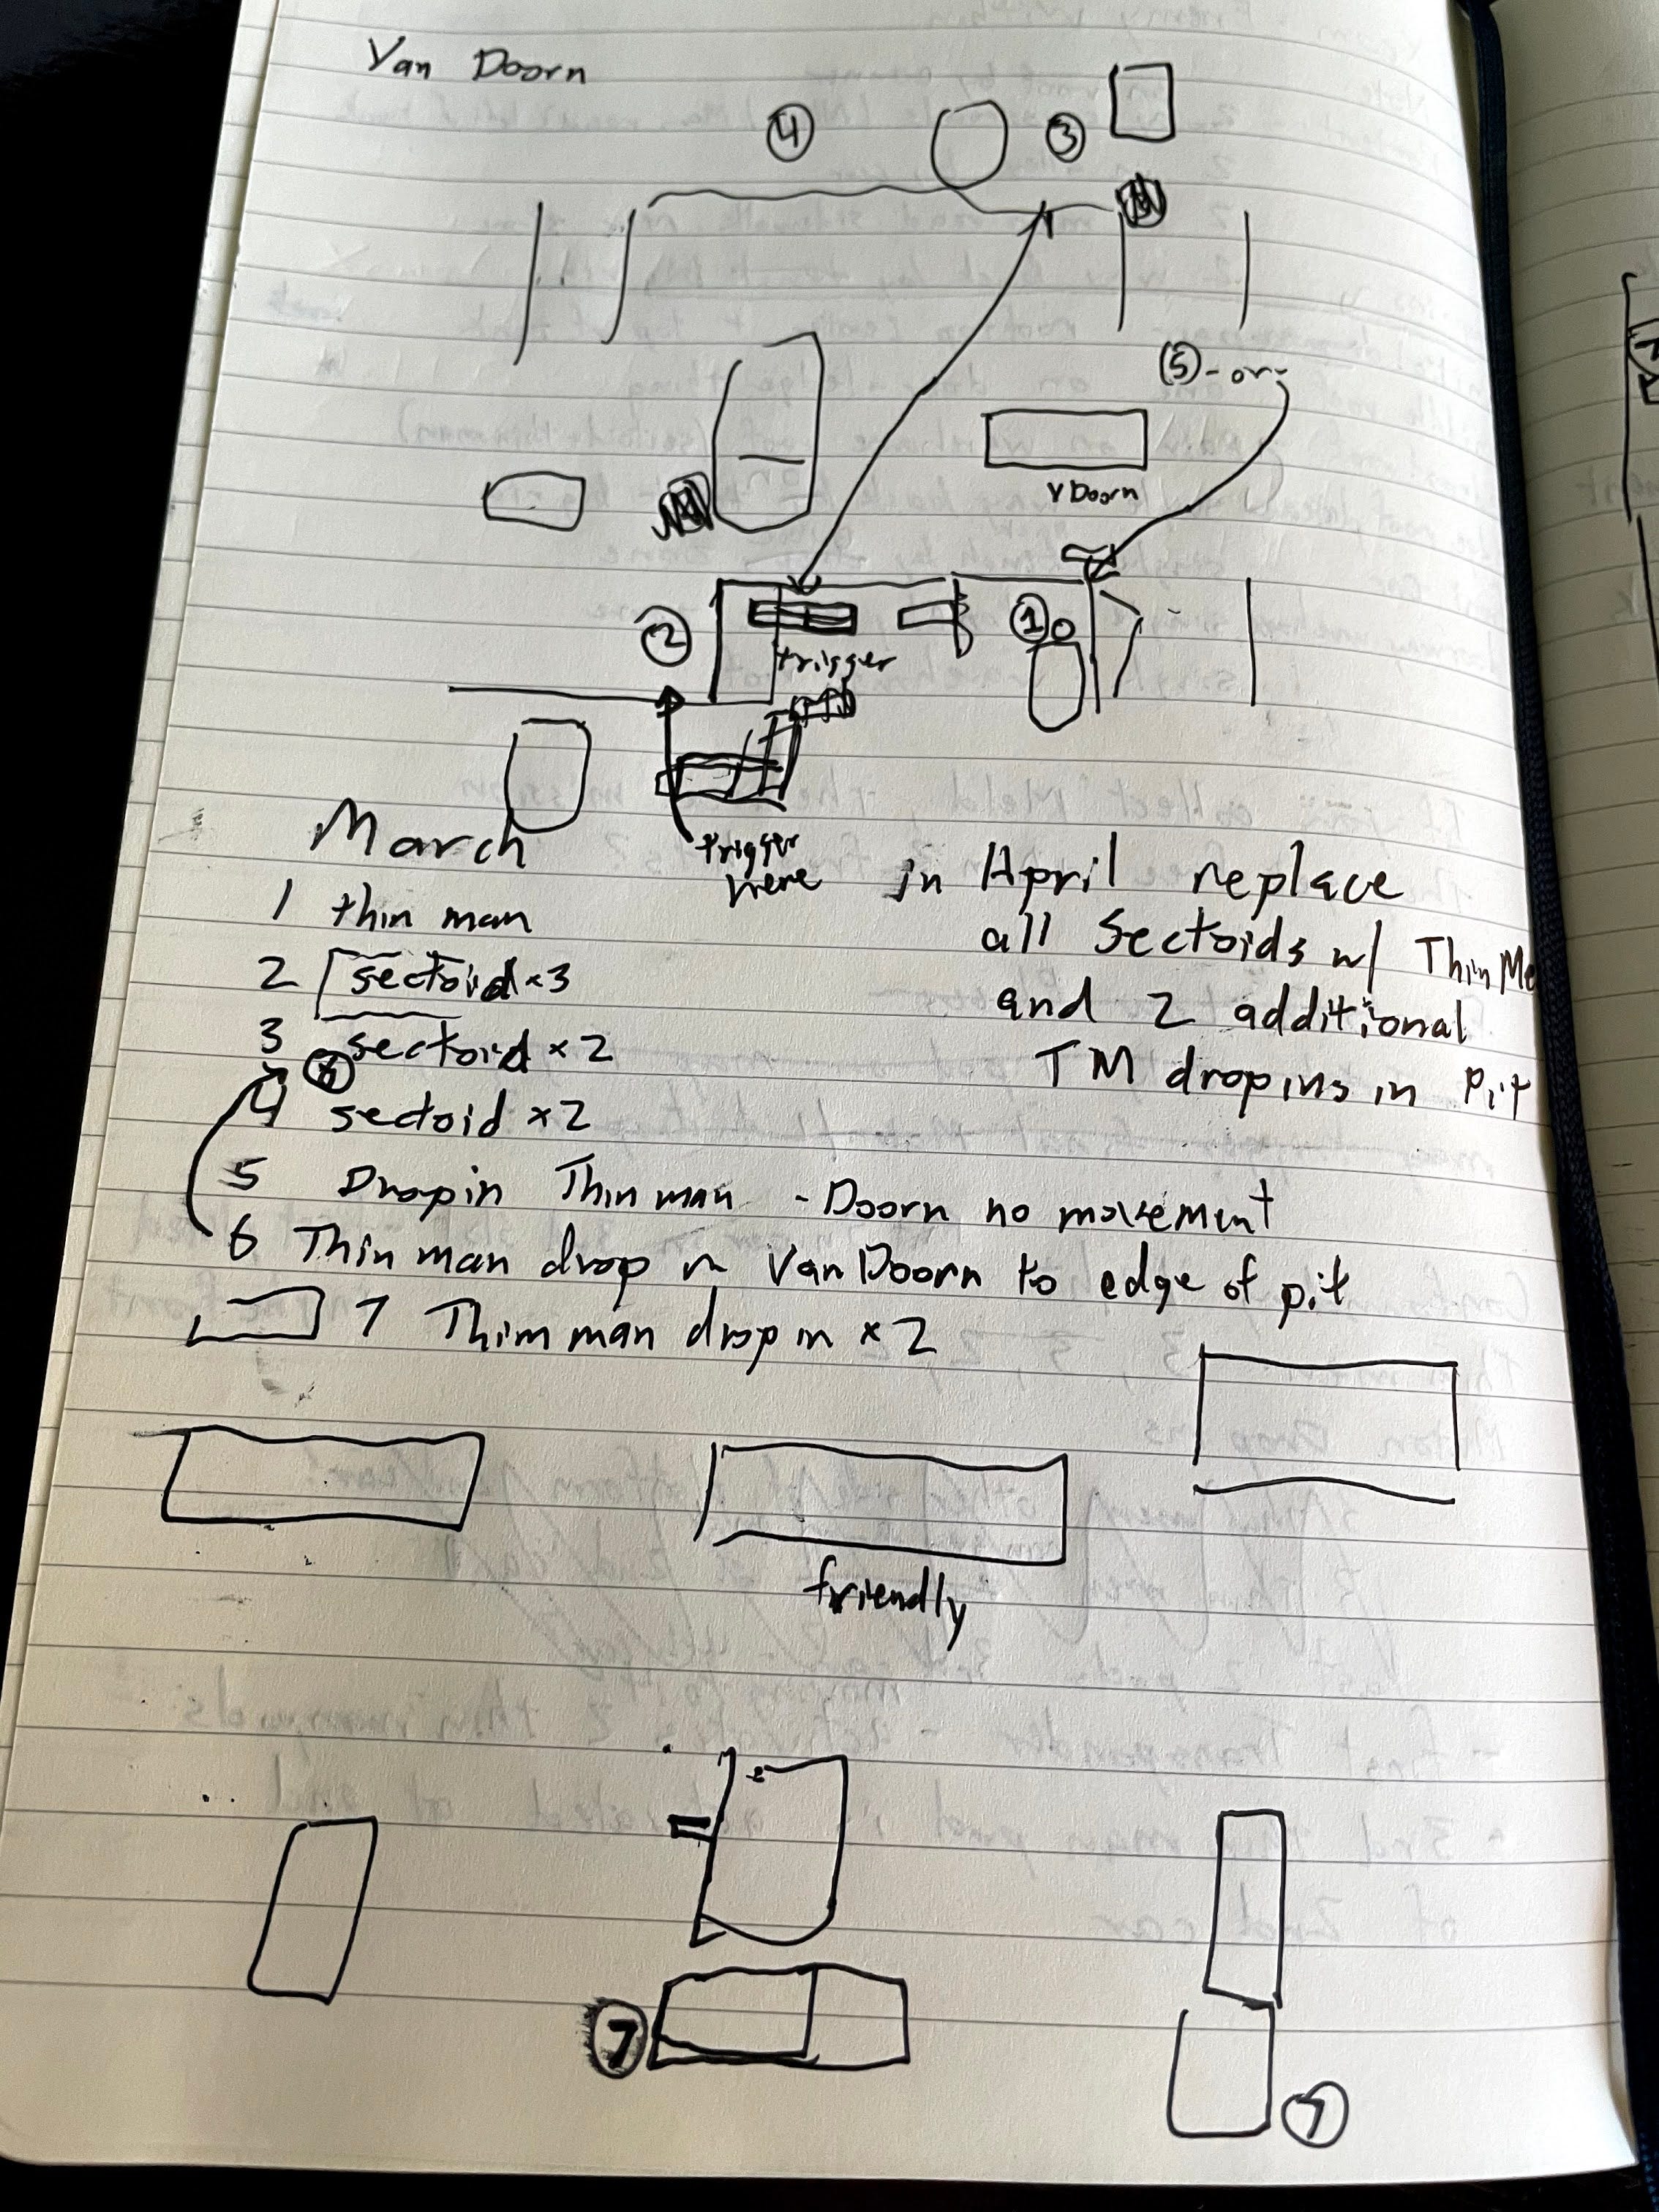 Van Doorn
④ ③
⑤-or-
VDoorn
② ①
trigger
trigger
here
March
1 thin man
2 sectoid x3
3 sectoid x2
⑥
4 sectoid x2
5 Dropin Thin man - Doorn no movement
6 Thin man drop in Van Doorn to edge of pit
7 Thin man drop in x2
in April replace
all Sectoids w/ Thin Me
and 2 additional
TM dropins in Pit
friendly
⑦
⑦